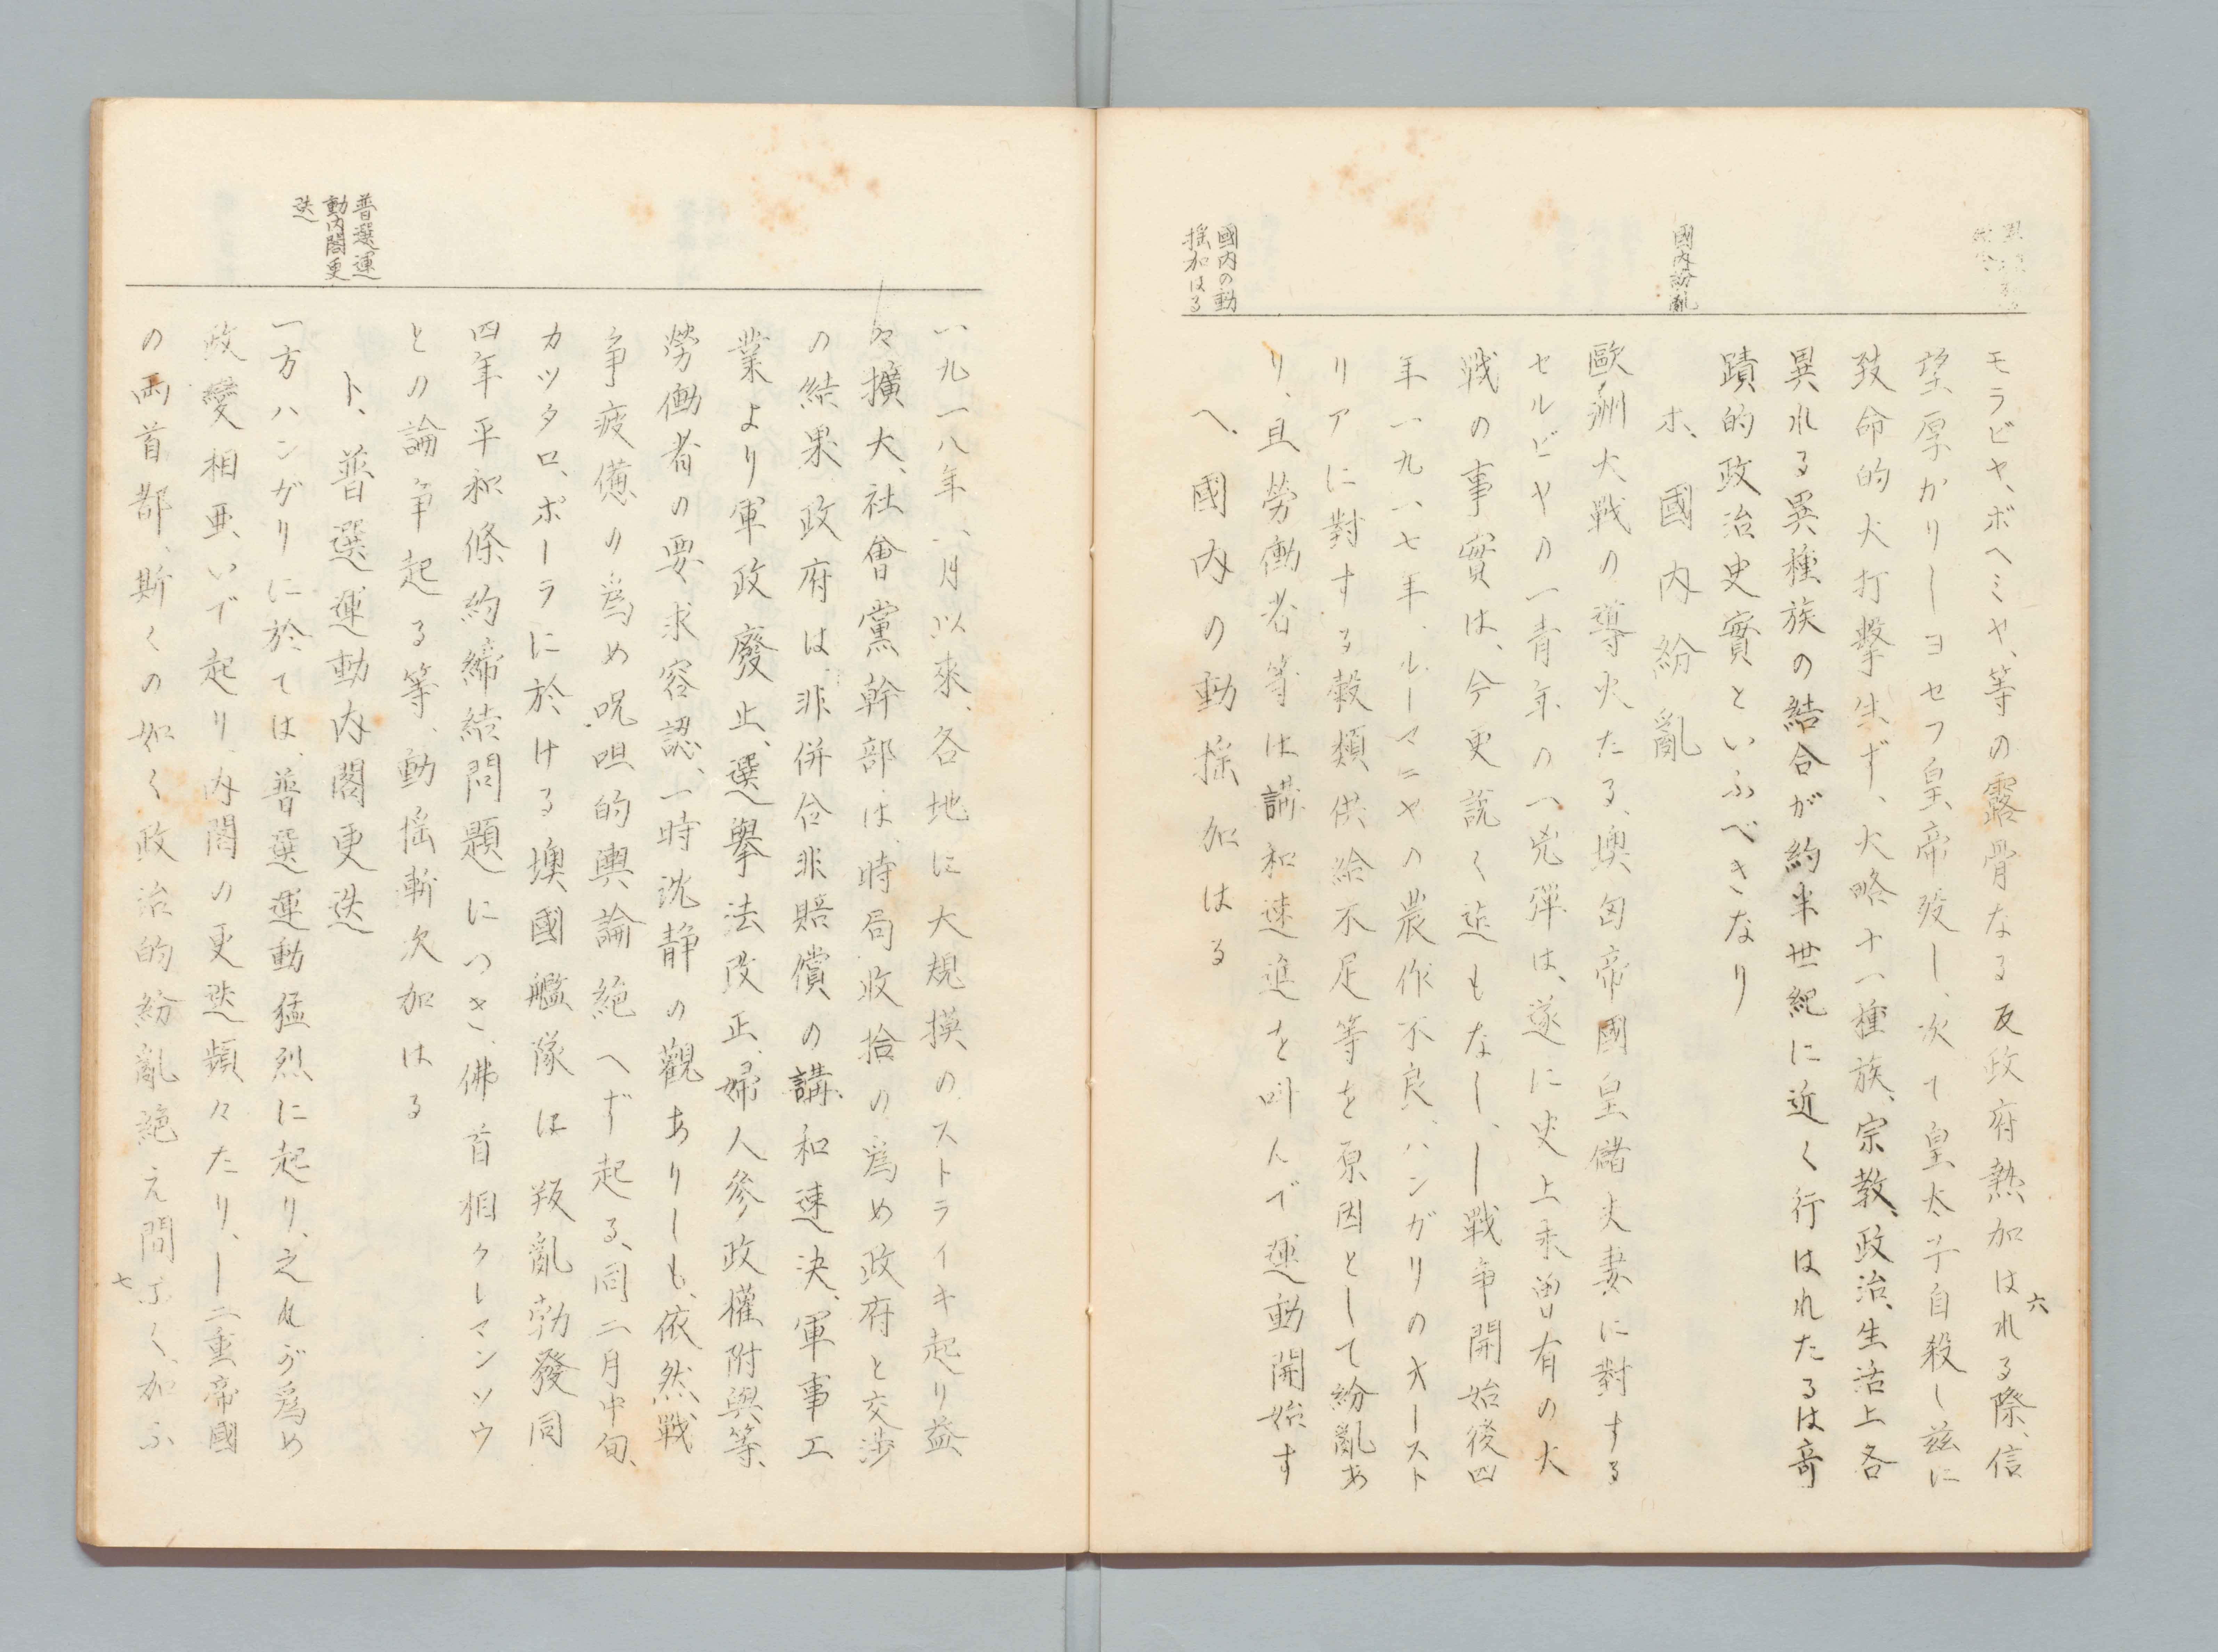 六
國內紛亂
國內の動
搖加はる
モラビヤ、ボヘミヤ、等の露骨なる反政府熱加はれる際、信
望厚かりしヨセフ皇帝歿し、次て皇太子自殺し茲に
致命的大打擊生ず、大略十一種族、宗教、政治、生活上各
異れる異種族の結合が約半世紀に近く行はれたるは奇
蹟的政治史實といふべきなり
ホ、國內紛亂
歐洲大戰の導火たる、墺匈帝國皇儲夫妻に對する
セルビヤの一青年の一兇彈は、遂に史上未曾有の大
戰の事實は、今更說く迄もなし、ー戰爭開始後四
年一九一七年、ルーマニヤの農作不良、ハンガリのオースト
リアに對する穀類供給不足等を原因として紛亂あ
り、且勞働者等は講和速進を叫んで運動開始す
ヘ、國內の動搖加はる
普選運
動內閣更
迭
一九一八年一月以來、各地に大規摸のストライキ起り益
々擴大、社會黨幹部は、時局收拾の爲め政府と交涉
の結果、政府は非併合非賠償の講和速決、軍事工
業より軍政廢止、選擧法改正、婦人參政權附與等、
勞働者の要求容認、一時沈靜の觀ありしも、依然戰
爭疲憊の爲め呪咀的輿論絕へず起る、同二月中旬、
カツタロ、ポーラに於ける墺國艦隊は叛亂勃發同
四年平和條約締結問題につき、佛首相クレマンソウ
との論爭起る等、動搖漸次加はる
ト、普選運動內閣更迭
一方ハンガリに於ては、普選運動猛烈に起り、之れが爲め
政變相亞いで起り、內閣の更迭頻々たり、ー二重帝國
の兩首都、斯くの如く政治的紛亂絕え間なく、加ふ
七